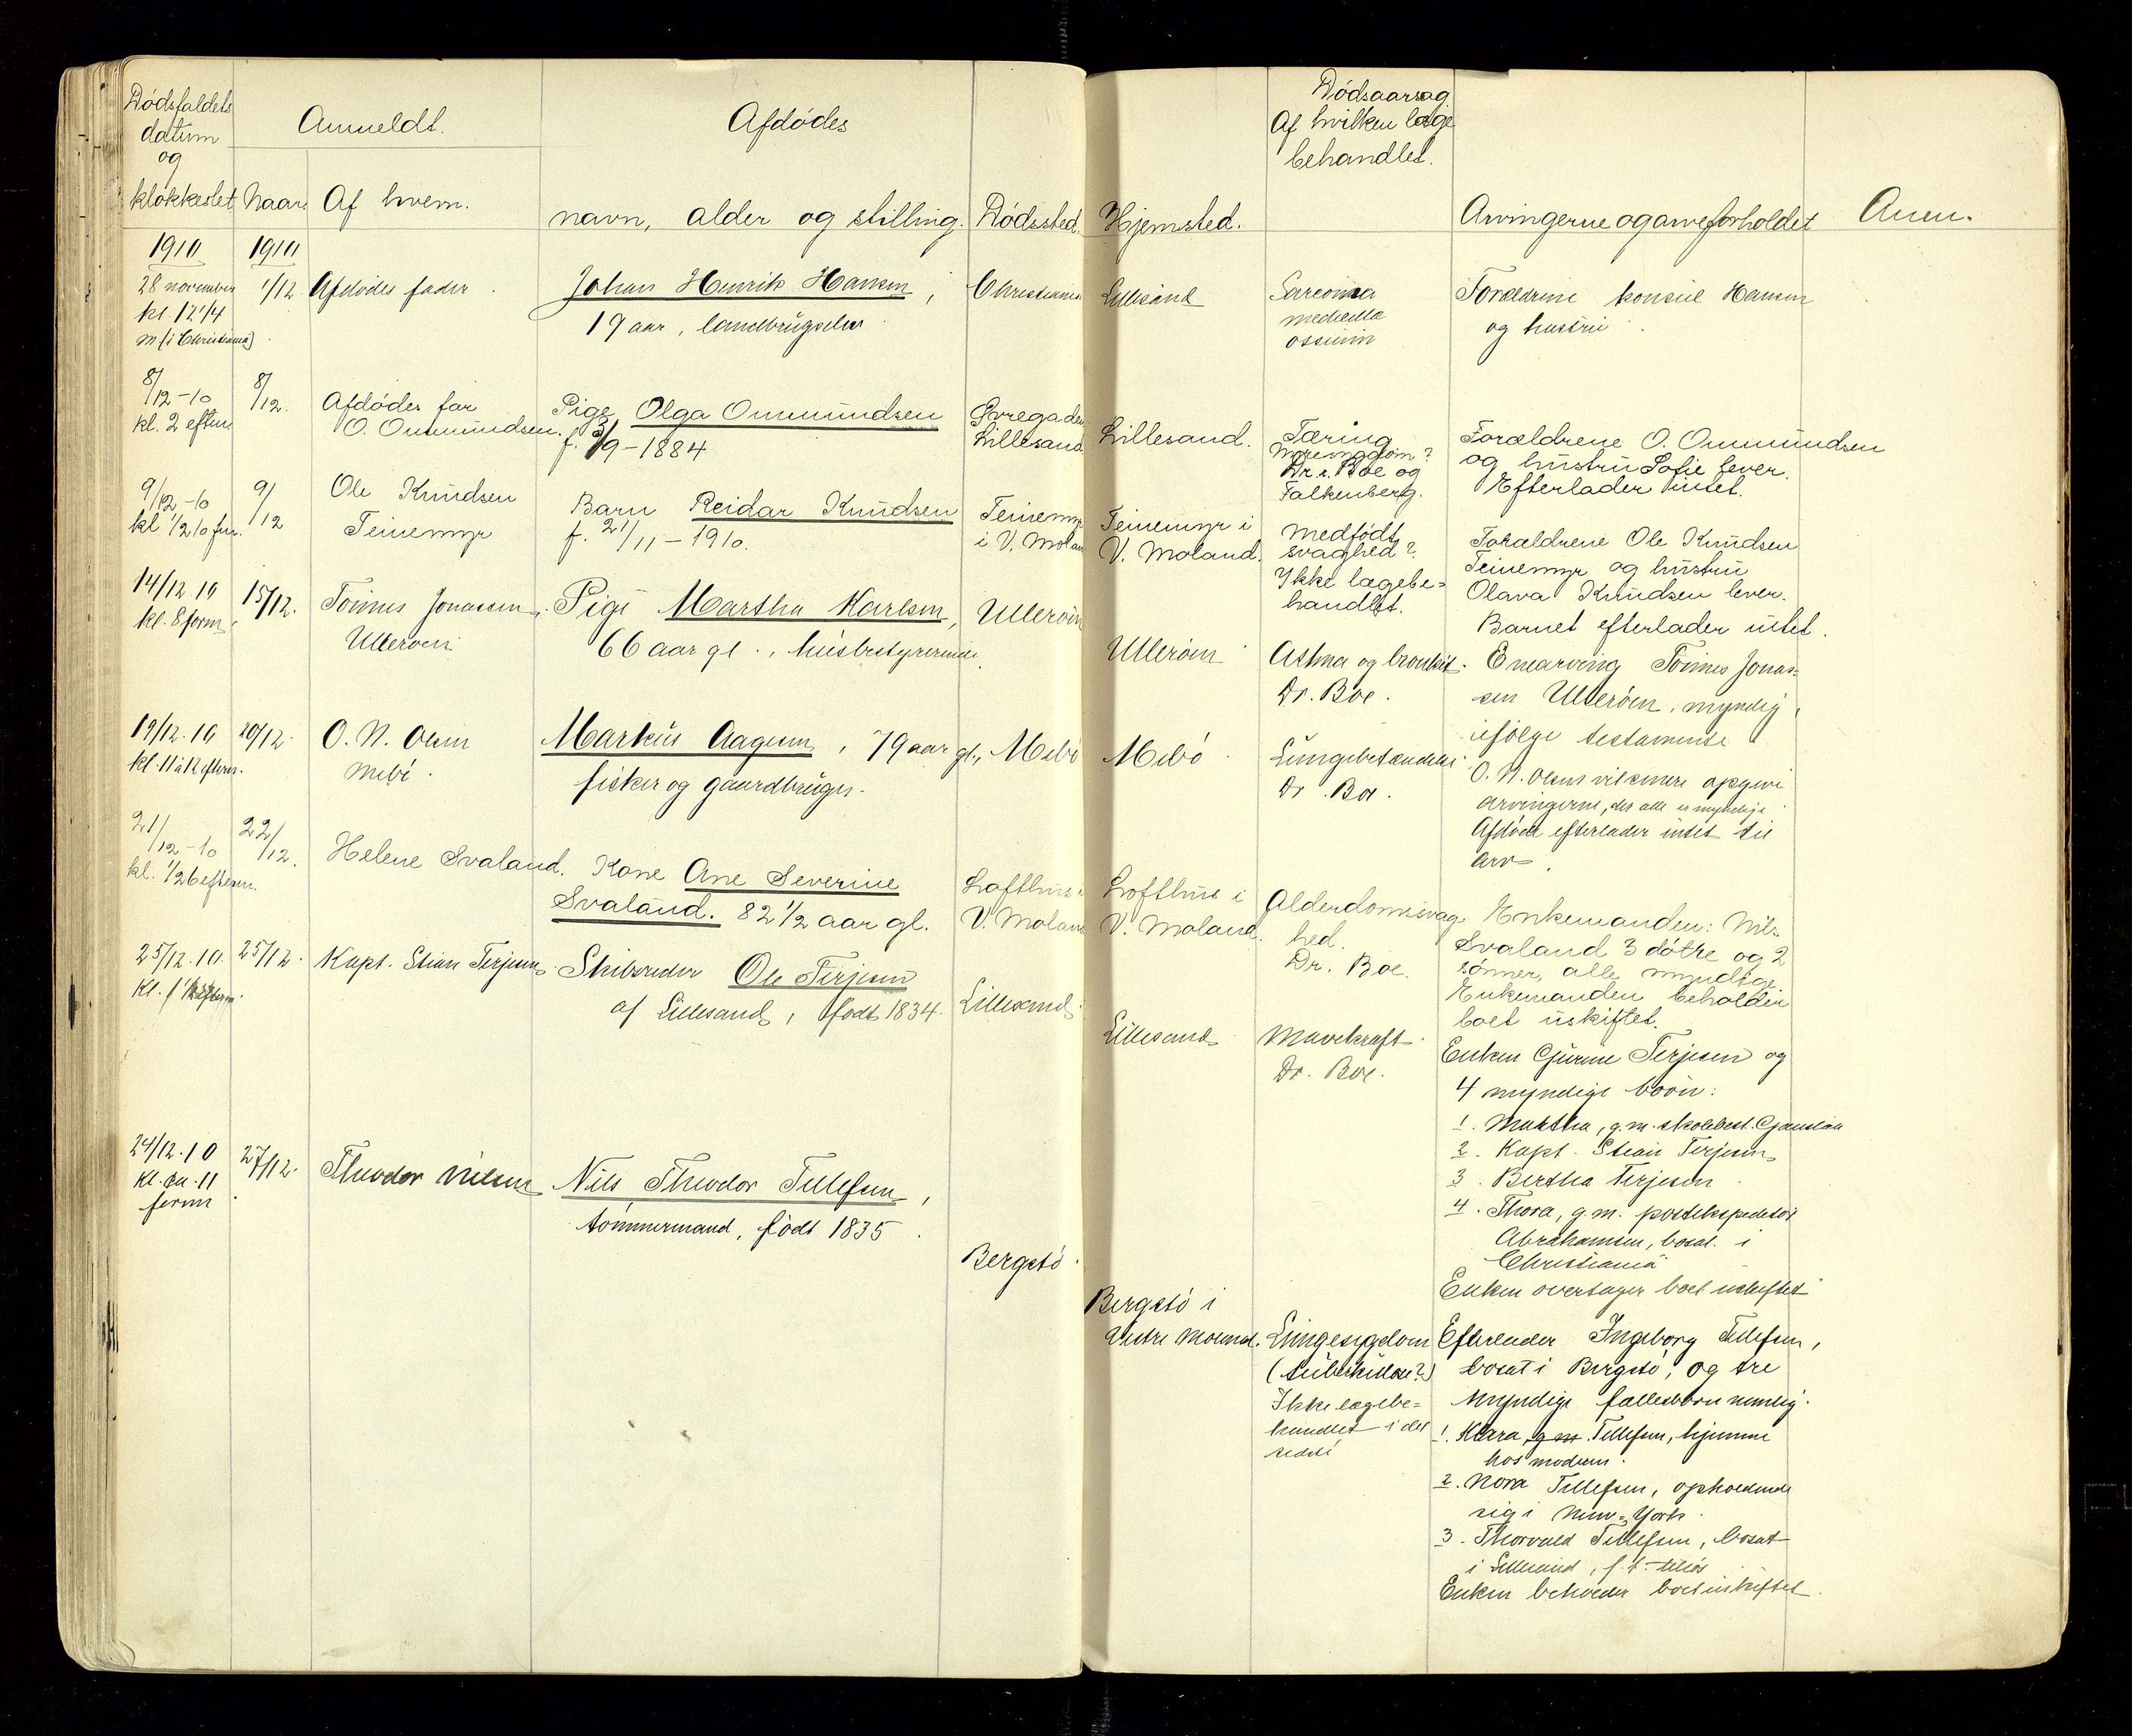 Dödsfaldets
datum
og
klokkeslet
Anmeldt.
Naar.
Af hvem.
Afdödes
navn, alder og stilling.
Dödssted.
Hjemsted.
Dödsaarsag.
Af hvilken læge
behandlet.
Arvingerne og arveforholdet
Anm.
1910
28 november
kl. 12 1/4
m (i Christiania)
1910
1/12
Afdödes fader.
Johan Henrik Hansen,
19 aar, landbrugselev
Christiania
Lillesand
Sarcoma
medulla
ossium
Forældrene konsul Hansen
og hustru.
8/12-10
kl. 2 efterm
8/12.
Afdödes far
O. Ommundsen.
Pige Olga Ommundsen
f. 3/9-1884
Övregaden
Lillesand
Lillesand.
Tæring
Dr.r. Boe og
Falkenberg.
Forældrene O. Ommundsen
og hustru Sofie lever.
Efterlader intet.
9/12-10
kl 1/2 10 fm.
9/12
Ole Knudsen
Teinemyr
Barn Reidar Knudsen
f. 21/11-1910.
Teinemyr
i V. Moland
Teinemyr i
V. Moland.
Medfödt
svaghed?
Ikke lægebe=
handlet.
Forældrene Ole Knudsen
Teinemyr og hustru
Olava Knudsen lever.
Barnet efterlader intet.
14/12 10
kl. 8 form.
15/12.
Tönnes Jonassen,
Ulleröen
Pige Martha Karlsen,
66 aar gl., husbestyrerinde.
Ulleröen
Ulleröen
Astma og bronkit.
Dr. Boe.
Enearving Tönnes Jonas=
sen Ulleröen, myndig,
ifölge testamente
19/12. 10
kl. 11 à 12 efterm.
20/12.
O. N. Olsen
Mebö.
Markus Aagesen, 79 aar gl.,
fisker og gaardbruger.
Mebö
Mebö
Lungebetændelse
Dr. Boe.
O. N. Olsen vil senere opgive
arvingerne, der alle er myndige
Afdöde efterlader intet til
arv.
21/12-10
kl. 1/2 6 efterm.
22/12.
Helene Svaland.
Kone Ane Severine
Svaland. 82 1/2 aar gl.
Lofthus i
V. Moland
Lofthus i
V. Moland.
Alderdomssvag=
hed.
Dr. Boe.
Enkemanden: Nils
Svaland 3 dötre og 2
sönner, alle myndige
Enkemanden beholder
boet uskiftet.
25/12. 10.
25/12.
Kapt. Stian Terjesen
Skibsreder Ole Terjesen
af Lillesand, födt 1834.
Lillesand.
Lillesand
Mavekræft
Dr. Boe.
Enken Gurine Terjesen og
4 myndige börn:
1. Martha, g.m. skolebest.
2. Kapt. Stian Terjesen
3. Bertha Terjesen
4. Thora, g.m. postekspeditör
Abrahamsen, bosat i
Christiania
Enken overtager boet uskiftet
24/12. 10
kl. ca. 11
form
27/12.
Theodor Nilsen
Nils Theodor Tellefsen,
tömmermand, födt 1835.
Bergstö.
Bergstö i
Vestre Moland.
Lungesygdom
(tuberkulose?)
Ikke lægebe=
handlet i det
sidste
Efterlader Ingeborg Tellefsen,
bosat i Bergstö, og tre
myndige fællesbörn nemlig:
1. Klara, g m. Tellefsen, hjemme
hos modren.
2. Nora Tellefsen, opholdende
sig i New-York.
3. Thorvald Tellefsen, bosat
i Lillesand, f. t. tilsjös
Enken beholder boet uskiftet.